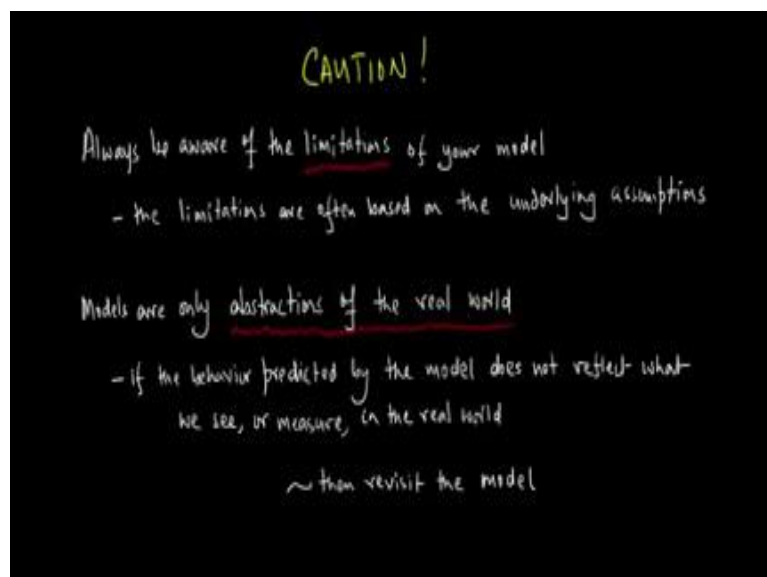 CAUTION!
Always be aware of the limitations of your model
- the limitations are often based on the underlying assumptions
Models are only abstractions of the real world
- if the behavior predicted by the model does not reflect what
we see, or measure, in the real world
~ then revisit the model